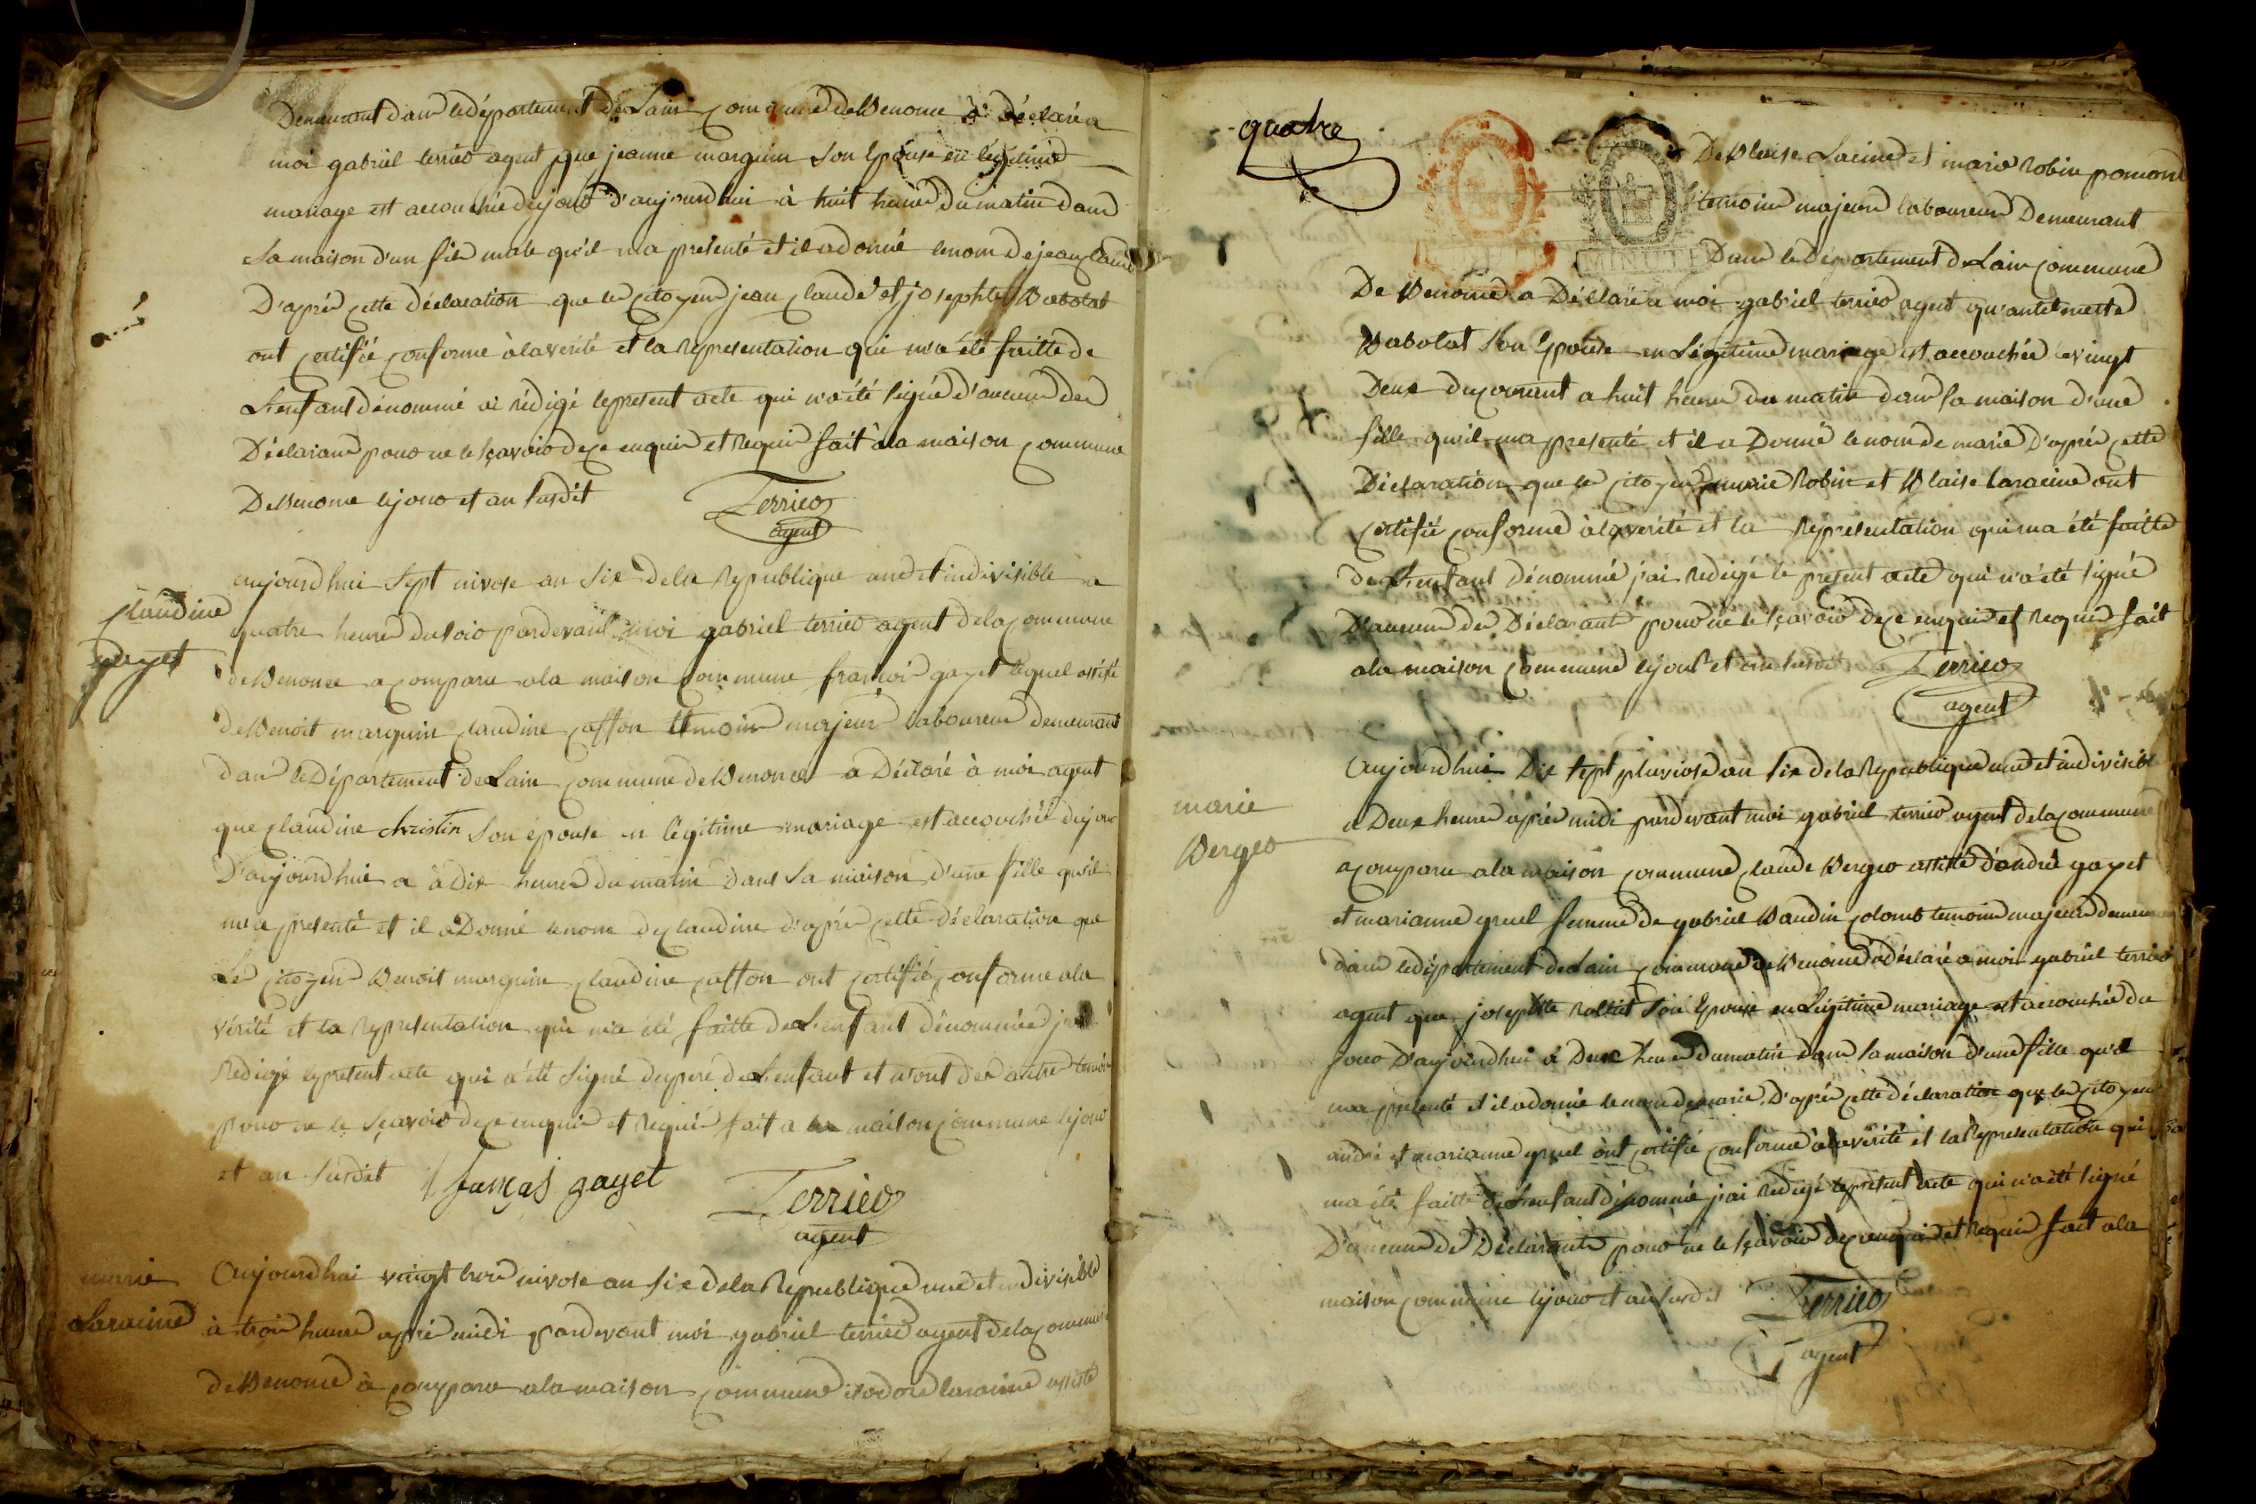 Demeurant dans le département de Lain commune de Benonce a déclaré a
moi gabriel terrier agent que jeanne marguin Son Epouse en légitime
mariage est accouchée du jour d'aujourdhui à huit heure du matin dans
Sa maison d'un fils male qu'il ma présenté et il a donné le nom de jean claude
D'après cette déclaration que les citoyens jean claude et josephte Babolat
ont certifié conforme à la vérité et la Représentation qui m'a été faitte de
L'enfant dénommé ai rédigé le present acte qui n'a été signé d'aucun des
Déclarans pour ne le sçavoir de ce enquis et Requis fait à la maison commune
De Benonce le jour et an susdit
Terrier
agent
claudine
gayet
aujourdhui Sept nivose an Six de la Republique une et indivisible a
quatre heures du soir pardevant moi gabriel terrier agent de la commune
de Benonce a comparu a la maison commune françois gayet lequel assisté
de Benoit marguin claudine caffon temoins majeurs laboureurs demeurant
dans le Département de Lain commune de Benonce a Déclaré à moi agent
que claudine christin Son épouse en légitime mariage est accouchée du jour
D'aujourdhui a à Dix heures du matin dans Sa maison d'une fille qu'il
m'a présenté et il a Donné le nom de claudine d'après cette déclaration que
Les citoyens Benoit marguin claudine caffon ont certifié conforme a la
vérité et la Représentation qui m'a été faitte de L'enfant dénommée j'ai
Rédigé le présent acte qui a été Signé du pere de L'enfant et non des autres temoins
pour ne le Sçavoir de ce enquis et Requis fait a la maison commune le jour
et an Susdit
françois gayet
Terrier
agent
marie
Laracine
Aujourdhui vaingt trois nivose an Six de la République une et indivisible
à trois heures après midi pardevant moi gabriel terrier agent de la commune
de Benonce à comparu a la maison commune laracine assisté
quatre
MINUTE
De Blaise Laracine et marie Robin
temoins majeurs laboureurs Demeurant
Dans le Département de Lain commune
De Benonce a Déclaré a moi gabriel terrier agent qu'antelmette
Babolat Son Epouse en Légitime mariage est accouchée le vingt
Deux du courant a huit heures du matin dans Sa maison d'une
fille qu'il ma presenté et il a Donné le nom de marie D'après cette
Déclaration que les citoyens marie Robin et Blaise laracine ont
certifié conforme à la verité et la Représentation qui ma été faitte
de L'enfant Dénommé j'ai Redigé le present acte qui n'a été signé
D'aucun des Déclarants pour ne le sçavoir de ce enquis et Requis fait
a la maison commune le jour et an susdit
Terrier
agent
marie
Berger
Aujourdhui Dix Sept pluviose an Six de la République une et indivisible
a Deux heures après midi pardevant moi gabriel terrier agent de la commune
a comparu a la maison commune claude Berger assisté d'andré gayet
et marianne gruel femme de gabriel Baudin colomb temoins majeurs demeurant
dans le département de Lain commune de Benonce a déclaré a moi gabriel terrier
agent que josephte Son Epouse en Légitime mariage est accouchée du
jour D'aujourdhui à Deux heures du matin dans Sa maison d'une fille qu'il
ma présenté et il a donné le nom de marie D'après cette déclaration que les citoyens
andré et marianne gruel ont certifié conforme à la vérité et la Représentation qui
ma été faitte de L'enfant dénommé j'ai Redigé le présent acte qui n'a été signé
D'aucun des Déclarants pour ne le sçavoir de ce enquis et Requis fait a la
maison commune le jour et an susdit
Terrier
agent